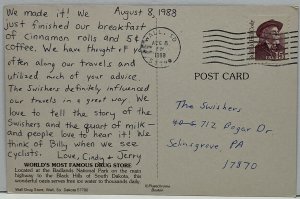 We made it! We August 8, 1988
just finished our breakfast
of Cinnamon rolls and 5¢
coffee. We have thought of you
often along our travels and
utilized much of your advice.
The Swishers definitely influenced
our travels in a great way. We
love to tell the story of the
Swishers and the quart of milk
and people love to hear it! We
think of Billy when we see
cyclists. Love, Cindy & Jerry
WORLD'S MOST FAMOUS DRUG STORE
Located at the Badlands National Park on the main
highway to the Black Hills of South Dakota, this
wonderful oasis serves free ice water to thousands daily.
Wall Drug Store, Wall, So. Dakota 57790
AUG 8
PM
1988
15
POST CARD
The Swishers
712 Bogar Dr.
Selinsgrove, PA
17870